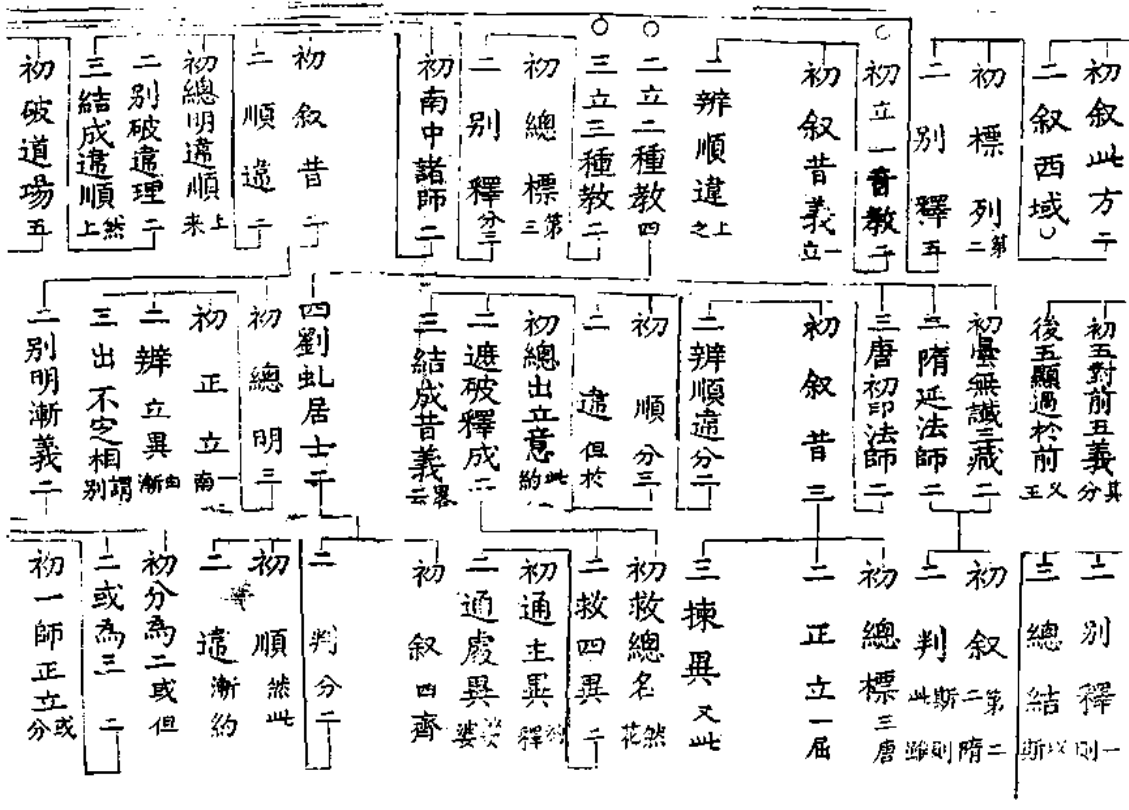 初叙此方二
二叙西域
初標列第二
二別釋五
初立一音教二
初叙昔義立一
二辨順違之上
二立二種教四
三立三種教二
初總標第三
二別釋分三
初南中諸師二
初叙昔二
二順違二
初總明違順上来
二別破違理二
三結成違順然上
初破道場五
初五對前五義其分
後五顯過於前又五
初曇無讖三藏二
二隋延法師二
三唐初印法師二
初叙昔三
二辨順違分二
初順分三
二違但於
初總出立意此約
二遮破釋成二
三結成昔義畧云
四劉虬居士二
初總明三
初正立一南
二辨立異由漸
三出不定相謂別
二別明漸義二
二別釋一則
三總結以斯
初叙第二隋二
二判斯此則雖
初總標三唐
二正立一屈
三揀異又此
初救總名然花
二救四異二
初通主異釋
二通處異婆
初叙四齊
二判分二
初順然此
二違漸約
初分為二或但
二或為三二
初一師正立或分